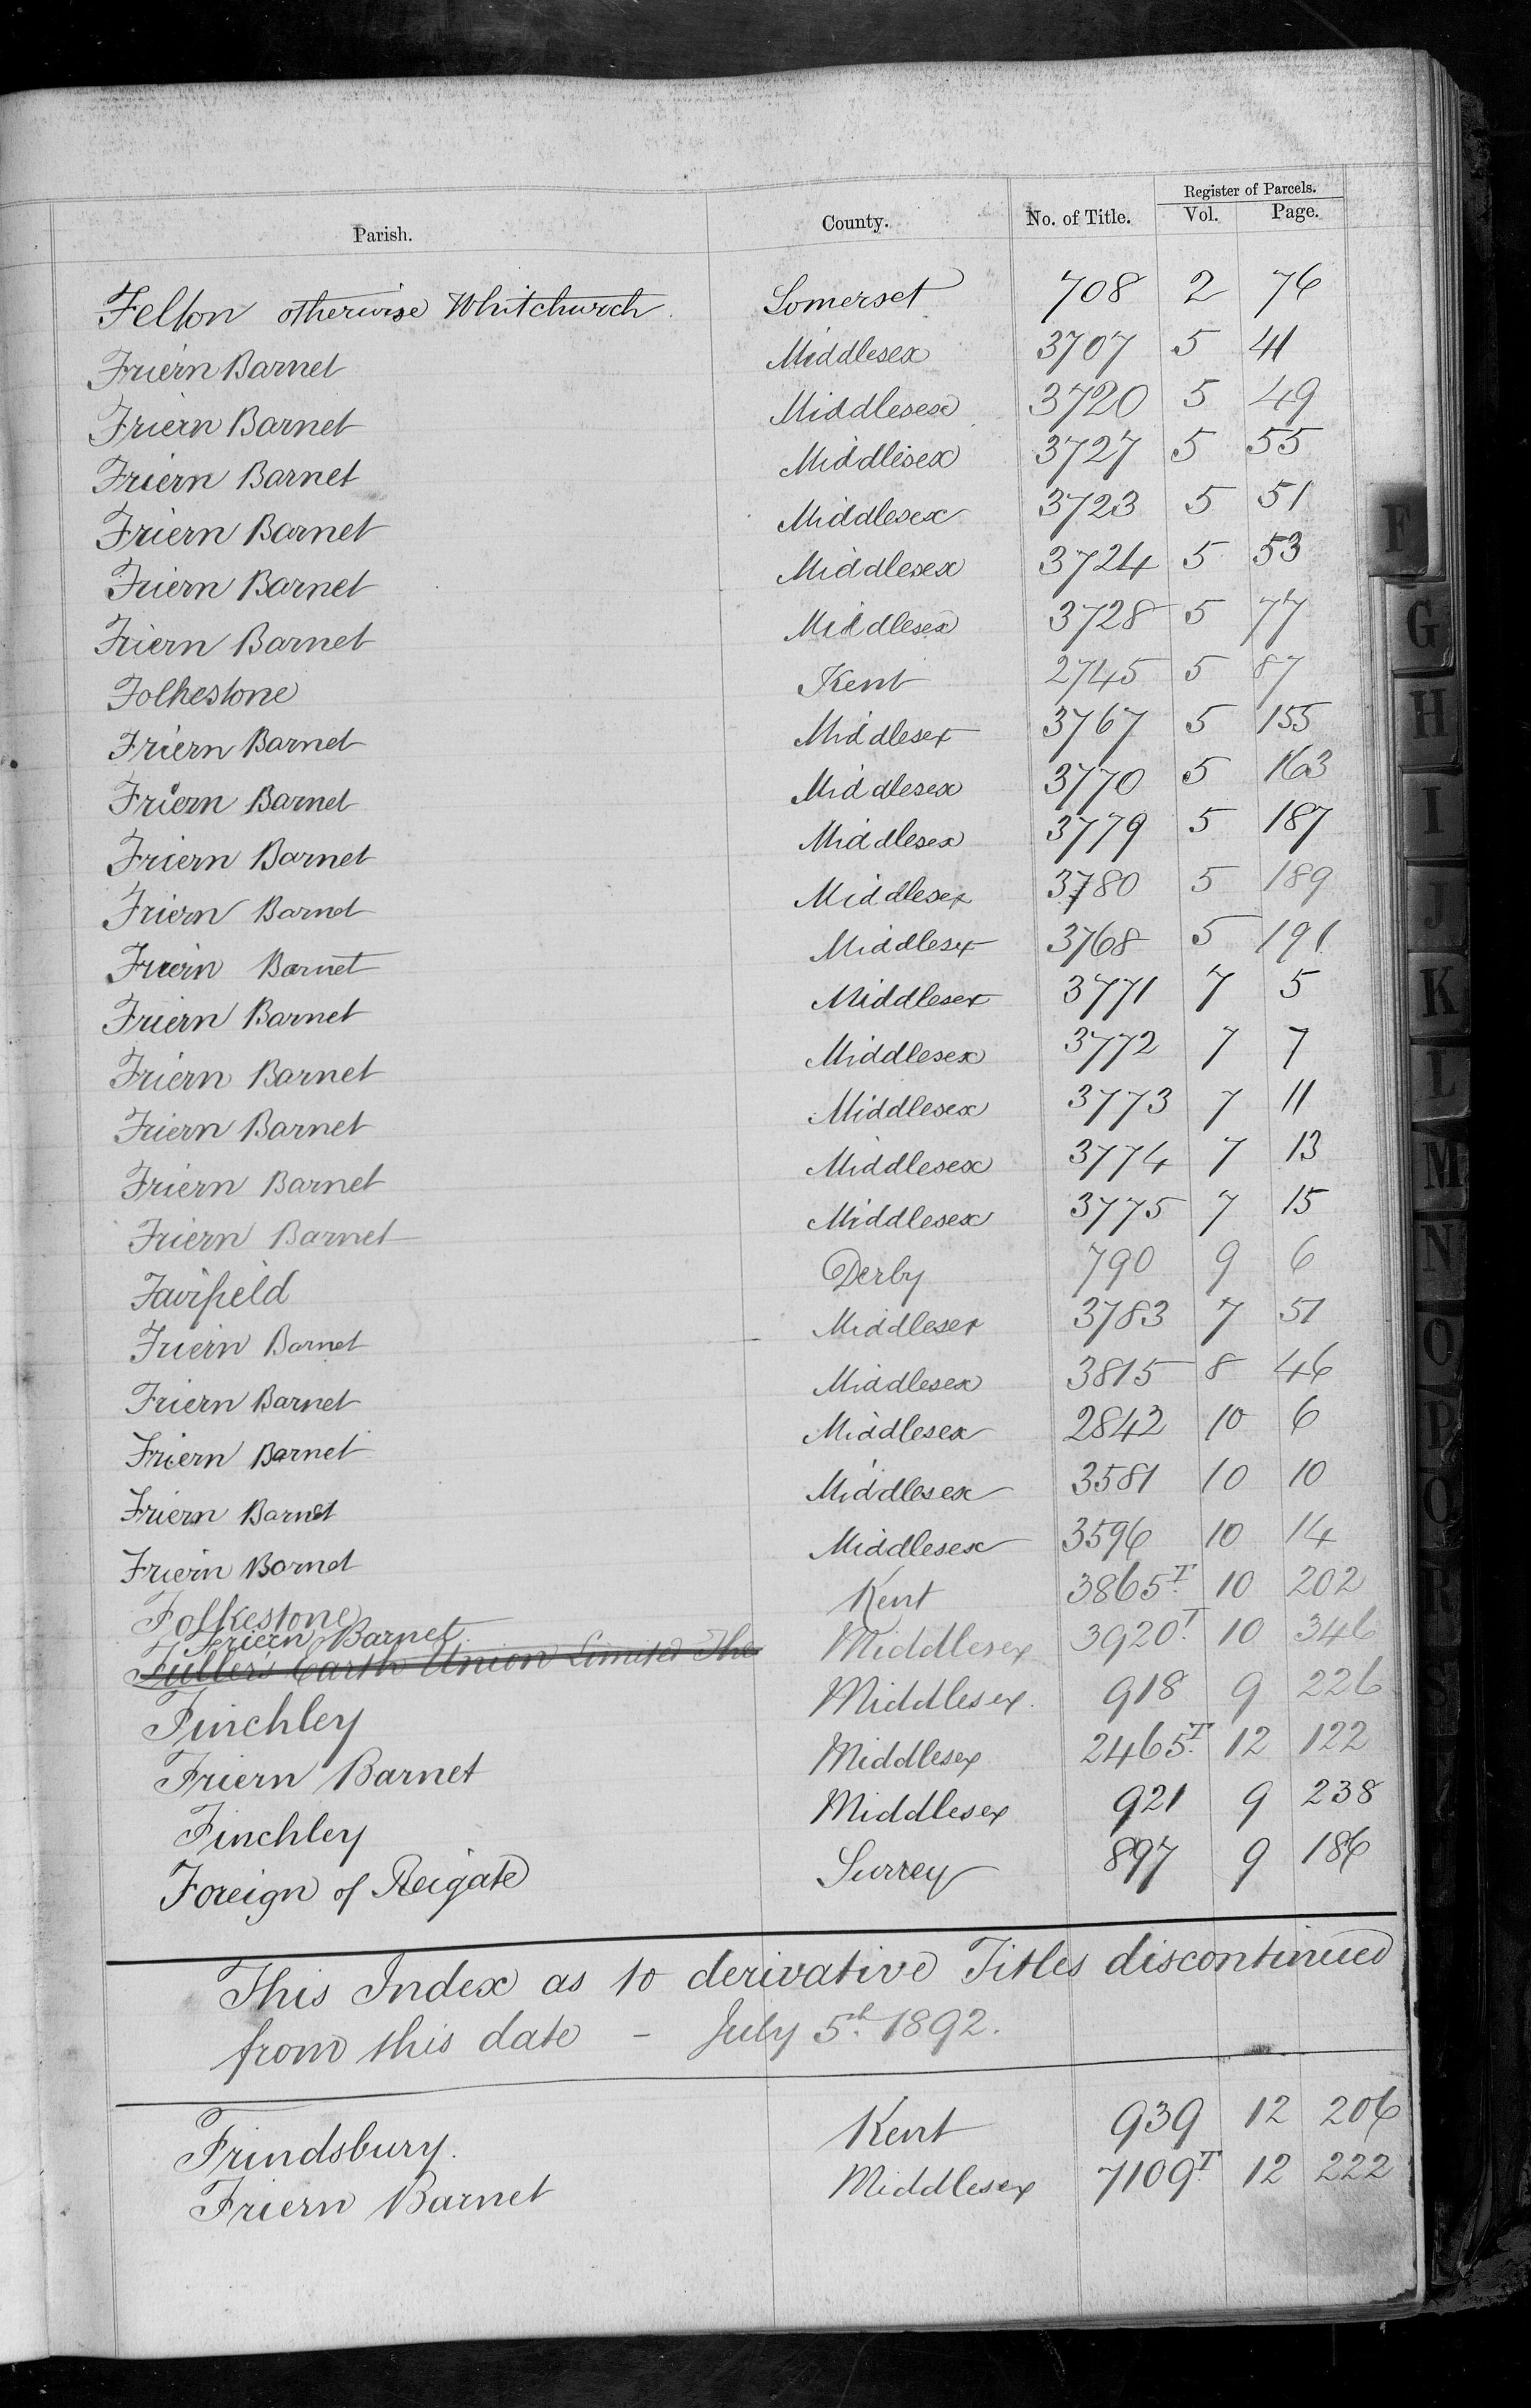 Register of Parcels.
Parish. County. No. of Title. Vol. Page.
Felton otherwise Whitchurch Somerset 708 2 76
Friern Barnet Middlesex 3707 5 41
Friern Barnet Middlesex 3720 5 49
Friern Barnet Middlesex 3727 5 55
Friern Barnet Middlesex 3723 5 51
Friern Barnet Middlesex 3724 5 53
Friern Barnet Middlesex 3728 5 77
Folkestone Kent 2745 5 87
Friern Barnet Middlesex 3767 5 155
Friern Barnet Middlesex 3770 5 163
Friern Barnet Middlesex 3779 5 187
Friern Barnet Middlesex 3780 5 189
Friern Barnet Middlesex 3768 5 191
Friern Barnet Middlesex 3771 7 5
Friern Barnet Middlesex 3772 7 7
Friern Barnet Middlesex 3773 7 11
Friern Barnet Middlesex 3774 7 13
Friern Barnet Middlesex 3775 7 15
Fairfield Derby 790 9 6
Friern Barnet Middlesex 3783 7 51
Friern Barnet Middlesex 3815 8 46
Friern Barnet Middlesex 2842 10 6
Friern Barnet Middlesex 3581 10 10
Friern Barnet Middlesex 3596 10 14
Folkestone Kent 3865T. 10 202
Friern Barnet Middlesex 3920T. 10 346
Fuller's Earth Union Limited The
Finchley Middlesex. 918 9 226
Friern Barnet Middlesex 2465T. 12 122
Finchley Middlesex 921 9 238
Foreign of Reigate Surrey 897 9 186
This Index as to derivative Titles discontinued
from this date - July 5th. 1892.
Frindsbury. Kent 939 12 206
Friern Barnet Middlesex 7109T. 12 222
F
G
H
I
J
K
L
M
N
O
P
Q
R
S